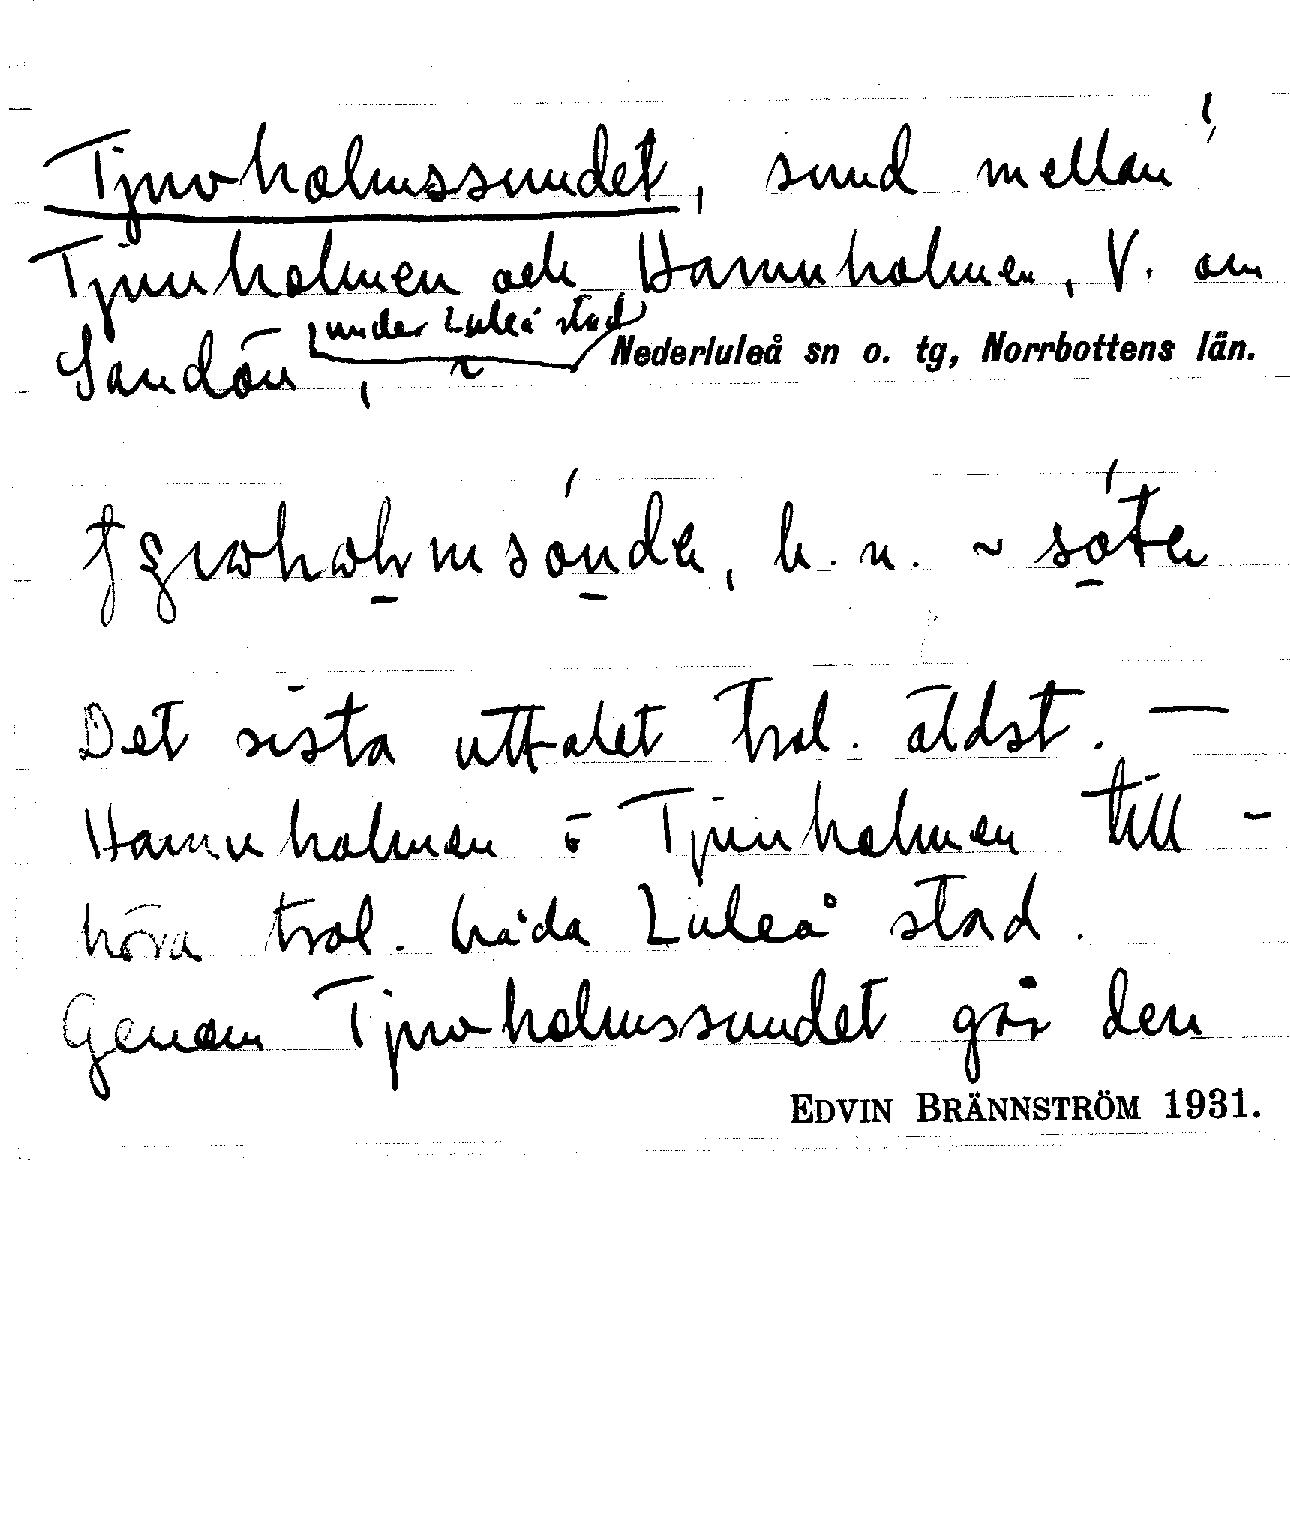 Tjuvholmssundet, sund mellan
Tjuvholmen och Hamnholmen, V. om
under Luleå stad
Sandön, Nederluleå sn o. tg, Norrbottens län.
b. n. ~
Det sista uttalet trol. äldst. —
Hamnholmen o Tjuvholmen till-
höra trol. båda Luleå stad.
Genom Tjuvholmssundet går den
EDVIN BRÄNNSTRÖM 1931.